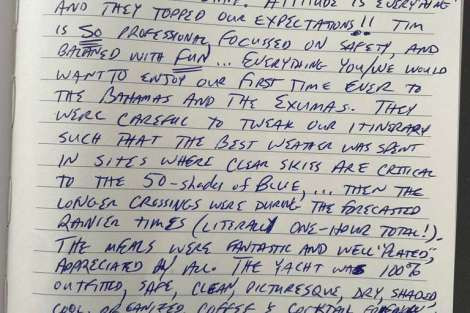 ATTITUDE IS EVERYTHING
AND THEY TOPPED OUR EXPECTATIONS!! TIM
IS SO PROFESSIONAL, FOCUSSED ON SAFETY, AND
BALANCED WITH FUN... EVERYTHING YOU/WE WOULD
WANT TO ENJOY OUR FIRST TIME EVER TO
THE BAHAMAS AND THE EXUMAS. THEY
WERE CAREFUL TO TWEAK OUR ITINERARY
SUCH THAT THE BEST WEATHER WAS SPENT
IN SITES WHERE CLEAR SKIES ARE CRITICAL
TO THE 50-SHADES OF BLUE, ... THEN THE
LONGER CROSSINGS WERE DURING THE FORECASTED
RAINIER TIMES (LITERALLY ONE-HOUR TOTAL!).
THE MEALS WERE FANTASTIC AND WELL "PLATED",
APPRECIATED BY ALL. THE YACHT WAS 100%
OUTFITTED, SAFE, CLEAN, PICTURESQUE, DRY, SHADED,
COOL, ORGANIZED, COFFEE & COCKTAIL FRIENDLY,